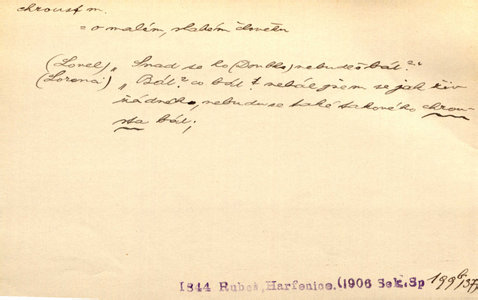 chroust m.
= o malém, slabém člověku
(Lovel) „Snad se ho (Doubka) nebudeš bát?"
(Lorenc) „Bát? co bát? nebál jsem se jak živ
žádného, nebudu se také takového chrou-
sta bát;
1844 Rubeš, Harfenice. (1906 Seb. Sp 199